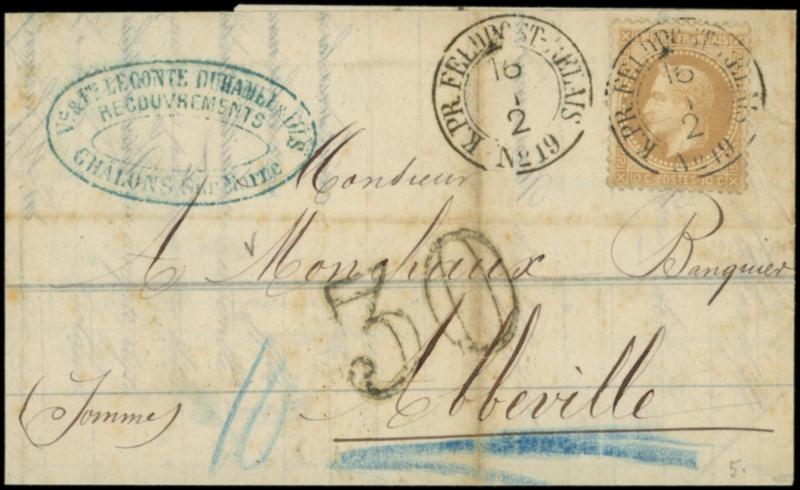 Vve & Fme LECONTE DUHAMEL & FILS
RECOUVREMENTS
CHALONS sur Marne
K.PR. FELDPOST-RELAIS
16
2
No 19
K.PR. FELDPOST-RELAIS
16
2
No 19
10 C POSTES 10 C
Monsieur
A Monchaux Banquier
30
Abbeville
(Somme)
10
5.